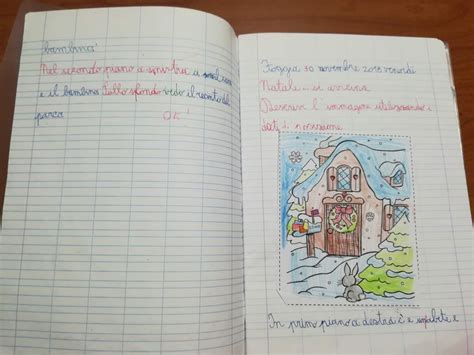 bambino
Nel secondo piano a sinistra a
e il bambino. Sullo sfondo vedo il recinto del
parco
Ok!
Foggia 30 novembre 2018 venerdì
Natale... si avvicina
Descrivi l'immagine utilizzando i
dati di
In primo piano a destra c'è e